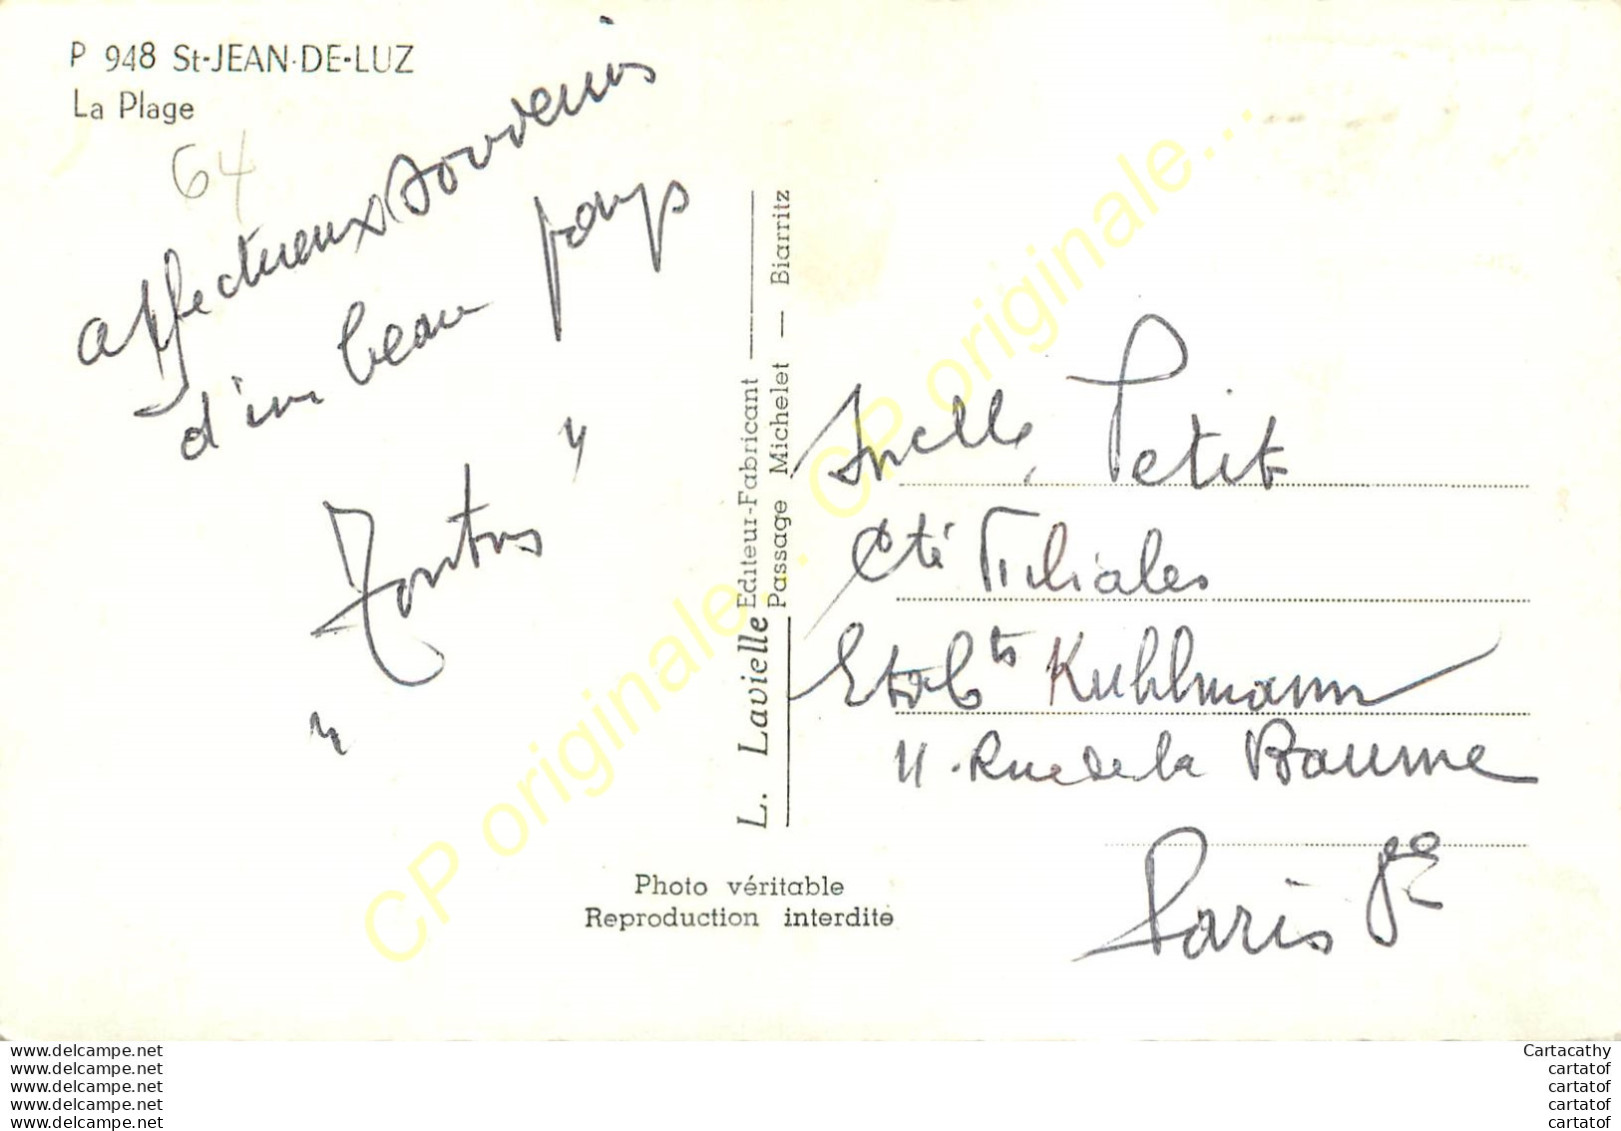 P 948 St-JEAN-DE-LUZ
La Plage
64
affectueux souvenirs
d'un beau pays
"
"
L. Lavielle Editeur-Fabricant
Passage Michelet — Biarritz
Melle Petit
Cté Filiales
Etabts Kuhlmann
11. Rue de la Baume
Paris 8e
Photo véritable
Reproduction interdite
CP originale... CP originale... CP originale...
www.delcampe.net
www.delcampe.net
www.delcampe.net
www.delcampe.net
www.delcampe.net
Cartacathy
cartatof
cartatof
cartatof
cartatof